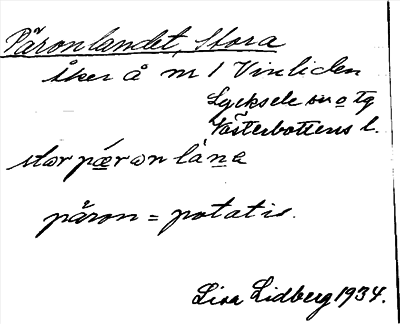 Päronlandet, Stora
åker å m 1 Vinliden
Lycksele sn o tg
Västerbottens l.
stor pæron låna
påron = potatis.
Lisa Lidberg 1934.